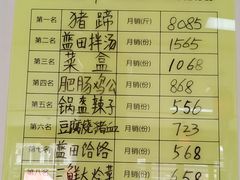 第一名 猪蹄 月销(斤) 8085
第二名 蓝田拌汤 月销(份) 1565
第三名 菜盒 月销(份) 1068
第四名 肥肠鸡公 月销(份) 868
第五名 锅盔辣子 月销(份) 556
第六名 豆腐烧猪血 月销(份) 723
第七名 蓝田饸饹 月销(份) 568
第八名 三鲜大烩菜 月销(份) 658